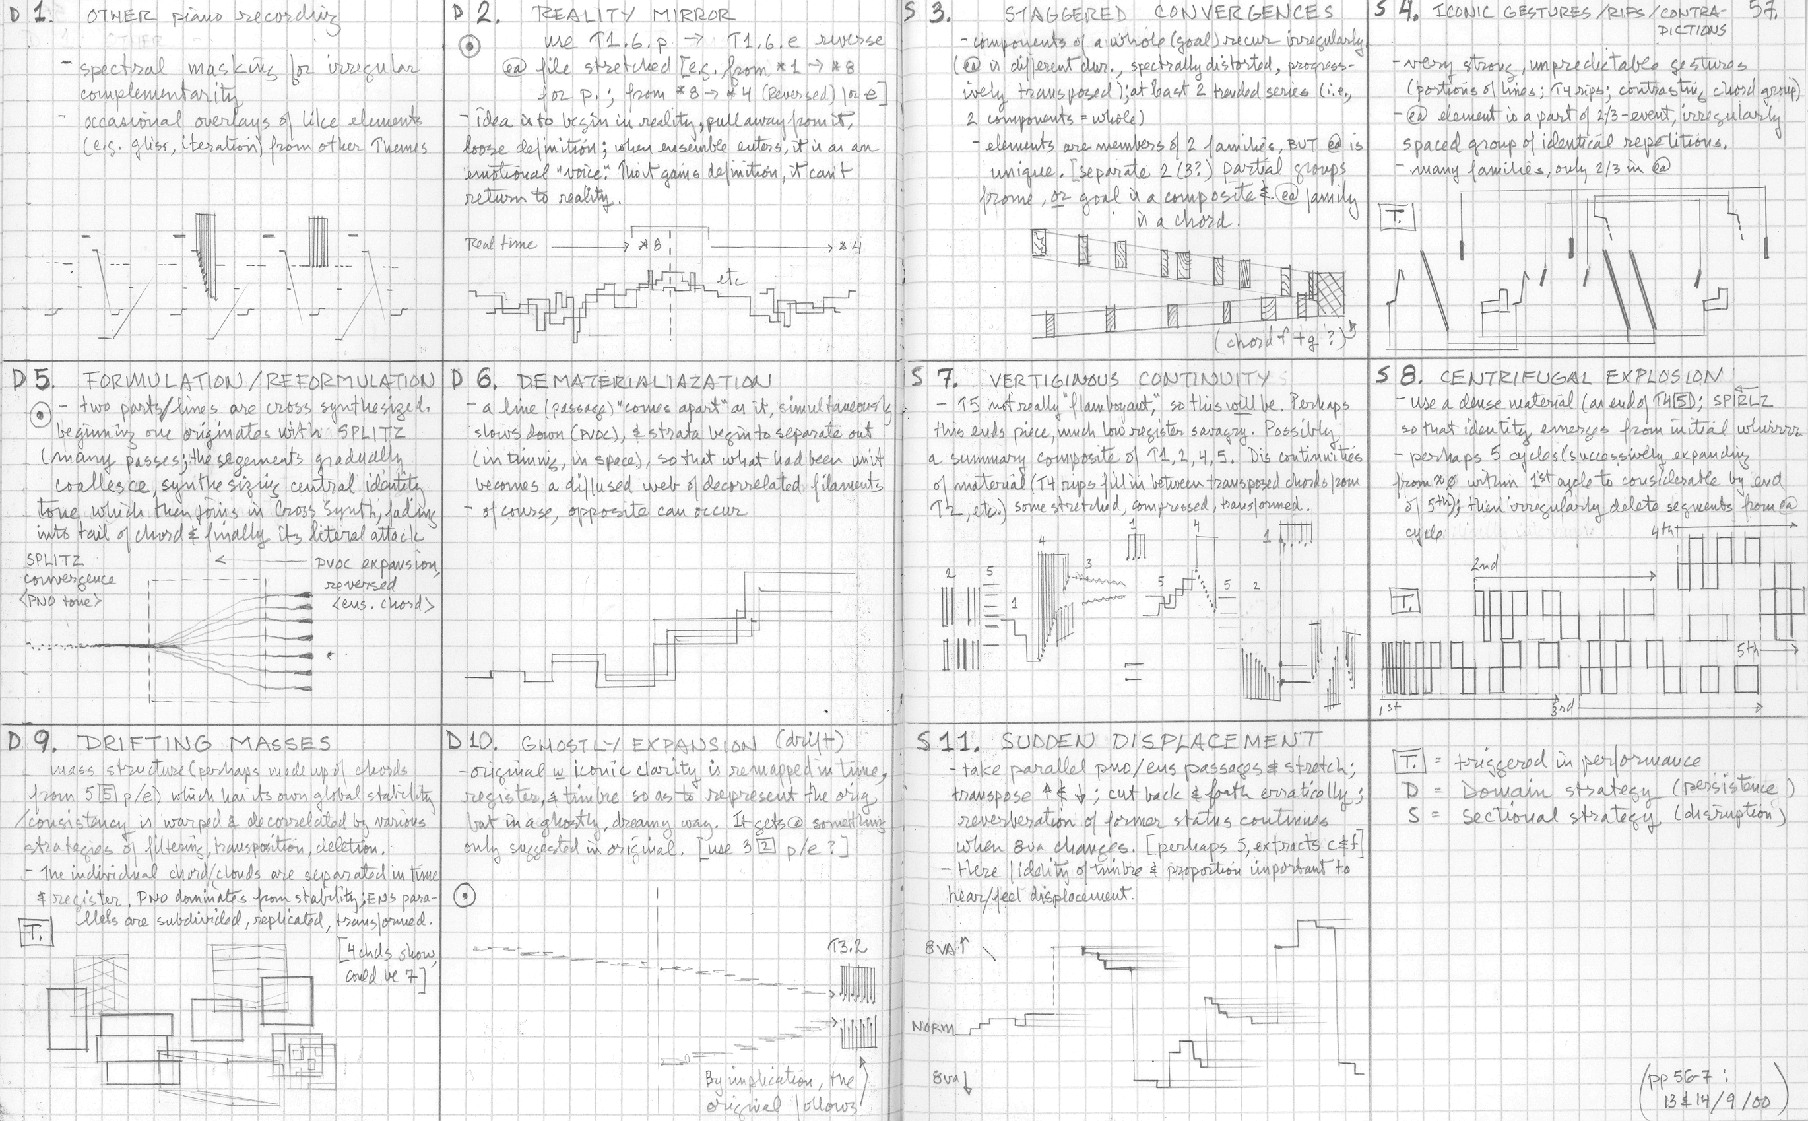 D 1. OTHER piano recording
- spectral masking for irregular
complementarity
- occasional overlays of like elements
(e.g. gliss, iteration) from other Themes
D 2. REALITY MIRROR
use T1.6.p → T1.6.e reverse
ea file stretched [e.g. from *1 → *8
for p.; from *8 → *4 (Reversed) for e]
- idea is to begin in reality, pull away from it,
loose definition; when ensemble enters, it is as an
emotional "voice." That gains definition, it can't
return to reality.
Real time
*8
*4
etc
S 3. STAGGERED CONVERGENCES
- components of a whole (goal) recur irregularly
(ea is different dur., spectrally distorted, progress-
ively transposed); at least 2 trended series (i.e.,
2 components = whole)
- elements are members of 2 families, BUT ea is
unique. [separate 2 (3?) partial groups
from e, or goal is a composite & ea family
is a chord.
(chord f + g ?)
S 4. ICONIC GESTURES/RIPS/CONTRA-
DICTIONS
57.
- very strong, unpredictable gestures
(portions of lines; T4 rips; contrasting chord group)
- ea element is a part of 2/3-event, irregularly
spaced group of identical repetitions.
- many families, only 2/3 in ea
T.
D 5. FORMULATION/REFORMULATION
- two parts/lines are cross synthesized.
beginning one originates with SPLITZ
(many passes; the segements gradually
coallesce, synthesizing central identity
tone which then joins in Cross Synth, fading
into tail of chord & finally its literal attack
SPLITZ
convergence
<PNO tone>
PVOC expansion,
reversed
<ens. chord>
D 6. DEMATERIALIAZATION
- a line (passage) "comes apart" as it, simultaneously
slows down (PVOC), & strata begin to separate out
(in timing, in space), so that what had been unit
becomes a diffused web of decorrelated filaments
- of course, opposite can occur
S 7. VERTIGINOUS CONTINUITY
- T5 not really "flamboyant," so this will be. Perhaps
this ends piece, much low register savagry. Possibly
a summary composite of T1, 2, 4, 5. Discontinuities
of material (T4 rips fill in between transposed chords from
T2, etc.) some stretched, compressed, transformed.
2
5
1
4
3
1
5
4
5
2
1
S 8. CENTRIFUGAL EXPLOSION
- use a dense material (as end of T4 5); SPIRLZ
so that identity emerges from initial whirrrr
- perhaps 5 cycles (successively expanding
from *0 within 1st cycle to considerable by end
of 5th); then irregularly delete segments from ea
cycle
4th
2nd
T.
5th
1st
3rd
D 9. DRIFTING MASSES
mass structure (perhaps made up of chords
from 5 5 p/e) which has its own global stability
/consistency is warped & decorrelated by various
strategies of filtering, transposition, deletion.
- The individual chord/clouds are separated in time
& register. PNO dominates from stability; ENS para-
llels are subdivided, replicated, transformed.
T.
[4 chds show,
could be 7]
D 10. GHOSTLY EXPANSION (drift)
- original w iconic clarity is remapped in time,
register, & timbre so as to represent the orig
but in a ghostly, dreamy way. It gets @ something
only suggested in original. [use 3 2 p/e ?]
T3.2
By implication, the
original follows
S 11. SUDDEN DISPLACEMENT
- take parallel pno/ens passages & stretch;
transpose ↑ & ↓; cut back & forth erratically;
reverberation of former status continues
when 8va changes. [perhaps 5, extracts c & f]
- Here fidelity of timbre & proportion important to
hear/feel displacement.
8VA↑
NORM
8va↓
T. = triggered in performance
D = Domain strategy (persistence)
S = Sectional strategy (disruption)
(pp 56-7 :
13 & 14/9/00)